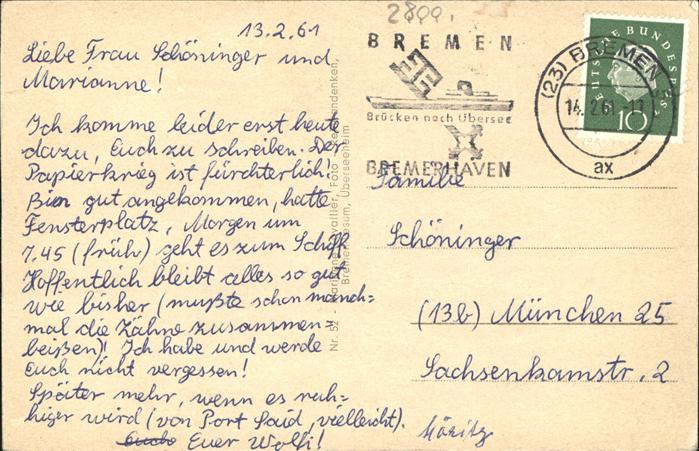 2800.
13.2.61
Liebe Frau Schöninger und
Marianne!
Ich komme leider erst heute
dazu, Euch zu schreiben. Der
Papierkrieg ist fürchterlich.
Bin gut angekommen, hatte
Fensterplatz, Morgen um
7.45 (früh) geht es zum Schiff
Hoffentlich bleibt alles so gut
wie bisher (mußte schon manch=
mal die Zähne zusammen=
beißen)! Ich habe und werde
Euch nicht vergessen!
Später mehr, wenn es ruh=
higer wird (von Port Said, vielleicht).
Euer Wolfi!
BREMEN
Brücken nach Übersee
BREMERHAVEN
(23) BREMEN
14.2.61
ax
DEUTSCHE BUNDESPOST
10
Familie
Schöninger
(13b) München 25
Sachsenkamstr. 2
Nr. 52